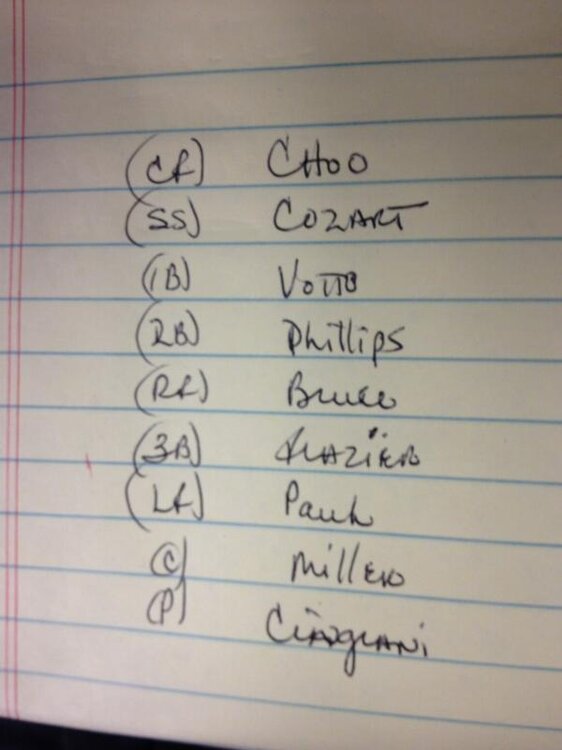 (CF) CHOO
(SS) COZART
(1B) VOTTO
(2B) Phillips
(RF) Bruce
(3B) FRAZIER
(LF) Paul
(C) Miller
(P) CINGRANI